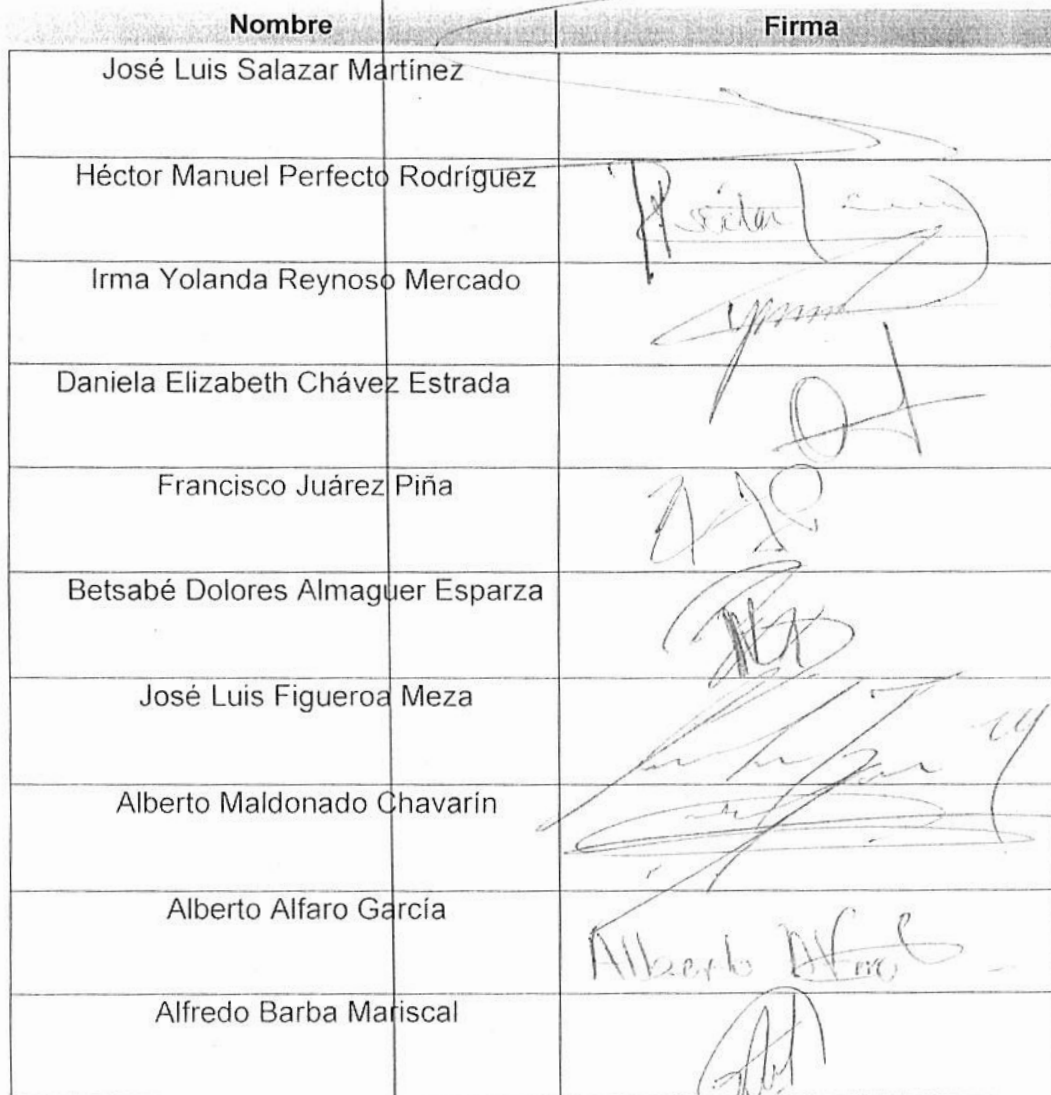 Nombre Firma
José Luis Salazar Martínez
Héctor Manuel Perfecto Rodríguez
Irma Yolanda Reynoso Mercado
Daniela Elizabeth Chávez Estrada
Francisco Juárez Piña
Betsabé Dolores Almaguer Esparza
José Luis Figueroa Meza
Alberto Maldonado Chavarín
Alberto Alfaro García
Alberto Alfaro
Alfredo Barba Mariscal